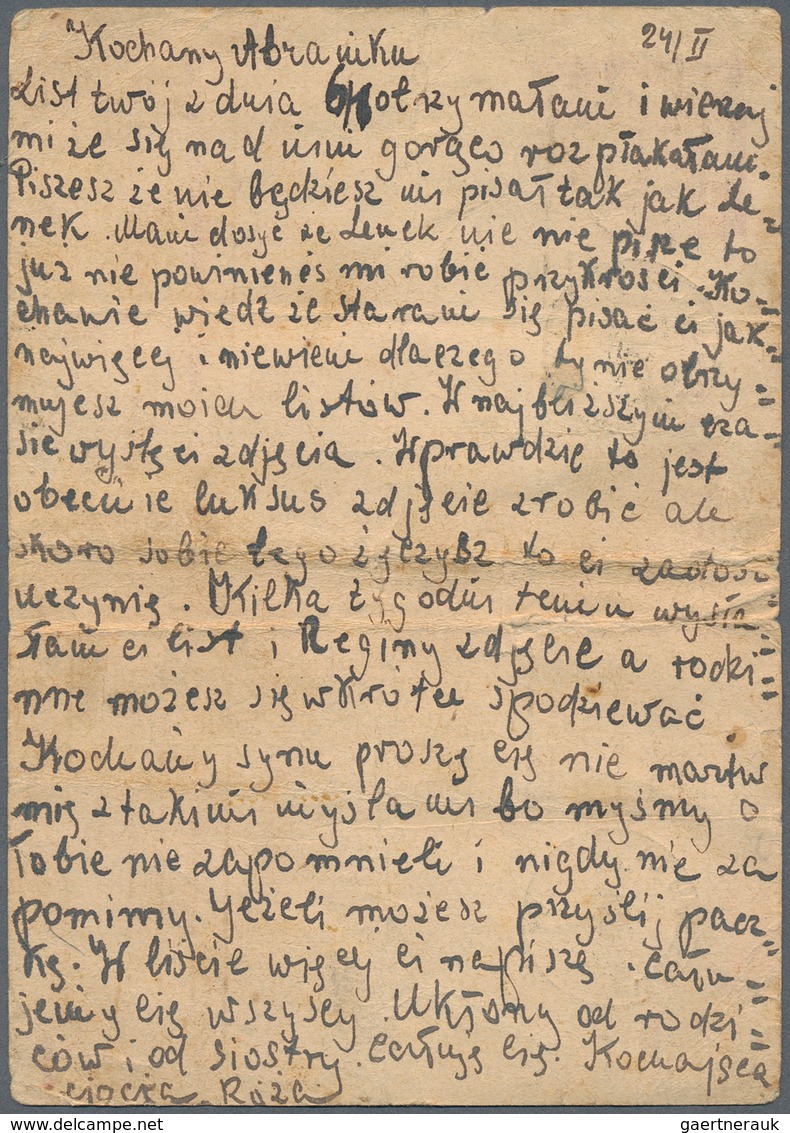 24/II
Kochany Abramku
List twój z dnia 6/I otrzymałam i wierzaj
mi że się nad nim gorąco rozpłakałam.
Piszesz że nie będziesz mi pisał tak jak Le-
nek. Mam dosyć że Lenek nie nie pisze to
już nie powinieneś mi robić przykrości. Ko-
chanie wiedz że staram się pisać ci jak-
najwięcej i niewiem dlaczego ty nie otrzy-
mujesz moich listów. W najbliższym cza-
sie wyślę ci zdjęcia. Wprawdzie to jest
obecnie luksus zdjęcie zrobić ale
skoro sobie tego życzysz to ci zadość
uczynię. Kilka tygodni temu wysła-
łam ci list i Reginy zdjęcie a rodzi-
nne możesz się wkrótce spodziewać
Kochany synu proszę cię nie martw
mię z takimi myślami bo myśmy o
Tobie nie zapomnieli i nigdy nie za
pomimy. Jeżeli możesz przyślij pacz-
kę. W liście więcej ci napiszę. Cału-
jemy cię wszyscy. Ukłony od rodzi-
ców i od siostry. Całuję cię. Kochająca
ciocia Róża
gaertnerauk